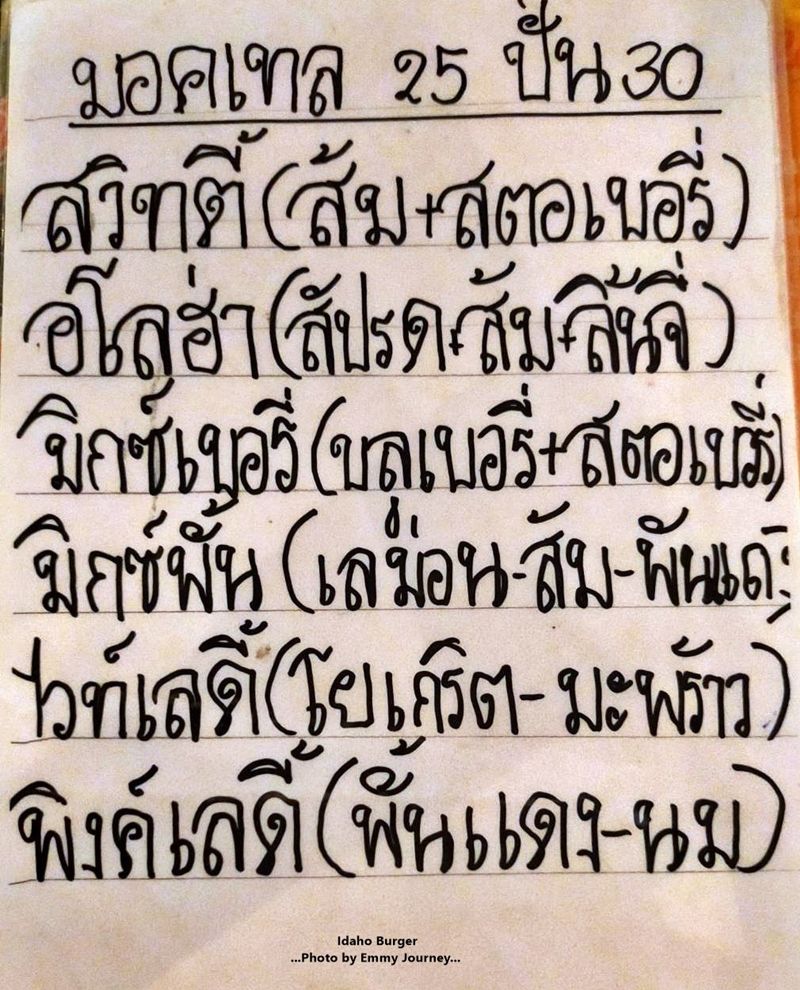 มอคเทล 25 ปั่น 30
สวิทตี้ (ส้ม+สตอเบอรี่)
อโลฮ่า (สัปรด+ส้ม+ลิ้นจี่)
มิกซ์เบอรี่ (บลูเบอรี่+สตอเบอรี่)
มิกซ์พั้น (เลม่อน-ส้ม-พันแดง)
ไวท์เลดี้ (โยเกิรต-มะพร้าว)
พิงค์เลดี้ (พั้นแดง-นม)
Idaho Burger
...Photo by Emmy Journey...